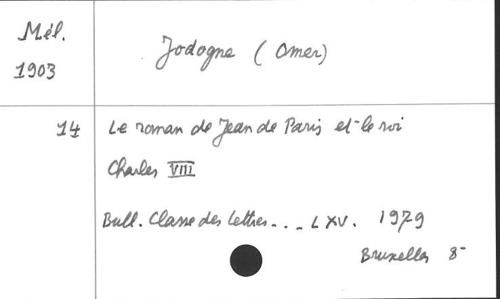 Mél.
1903
Jodogne (Omer)
14
Le roman de Jean de Paris et le roi
Charles VIII
Bull. Classe des Lettres... LXV. 1979
Bruxelles 8-